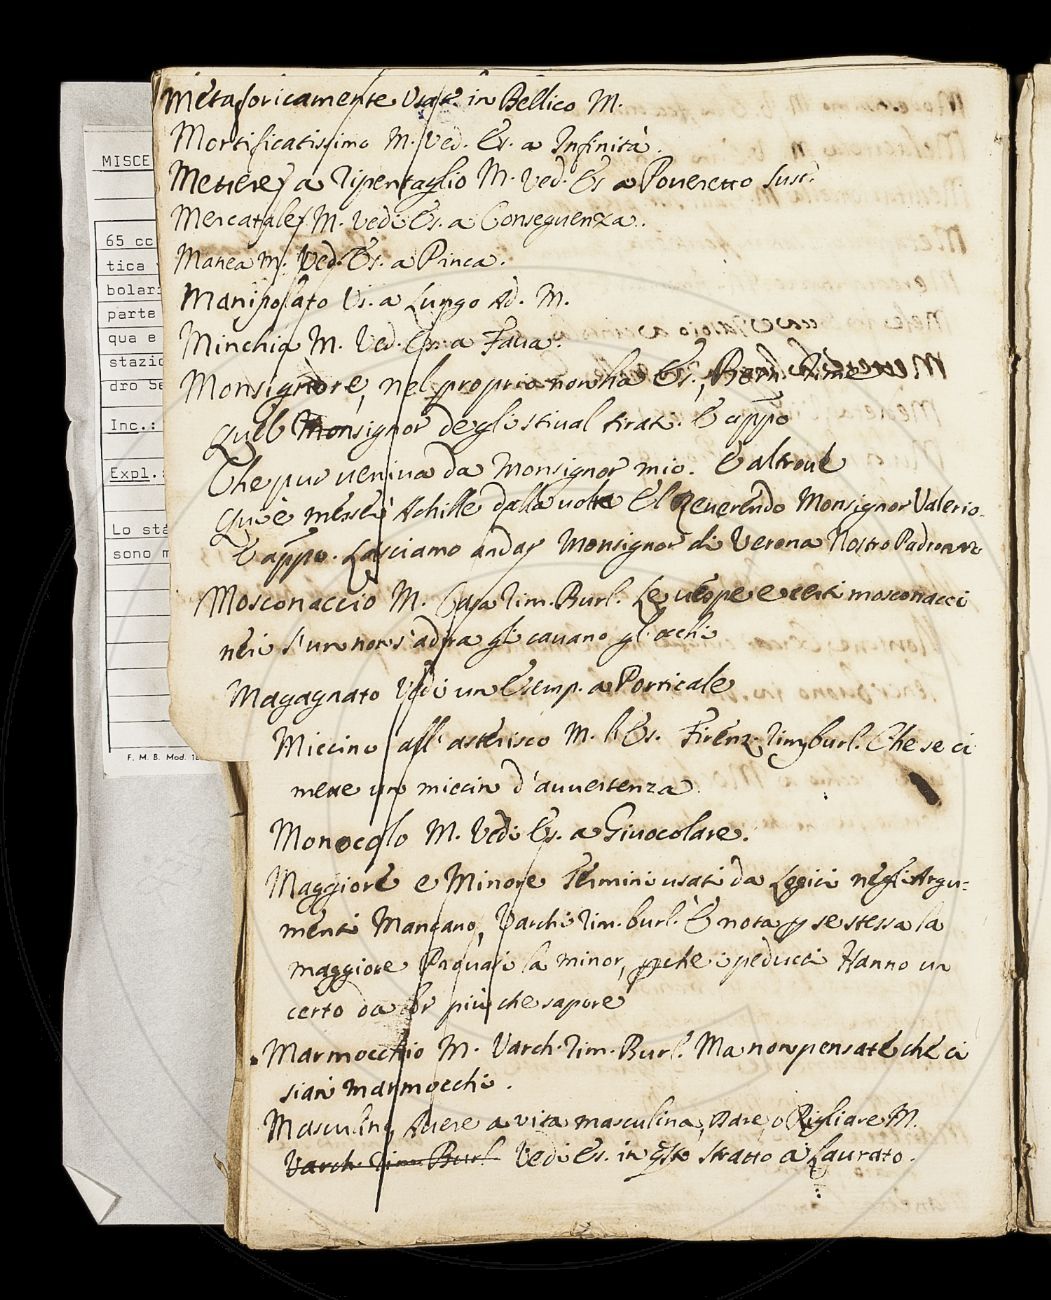 MISCE
65 cc
tica
bolari
parte
qua e
stazio
dro Se
Inc.:
Expl.
Lo sta
sono m
F. M. B. Mod.
Metaforicamente Usat. in Bellico M.
Mortificatissimo M. Ved. Es. a Infinità.
Mettere a ripentaglio M. Ved. Es a Poueretto Sust.
Mercatale M. Vedi Es. a Conseguenza.
Manea M. Ved. Es. a Pinca.
Manipolato Us. a Lungo Ad. M.
Minchia M. Ved. Es. a Faua.
Monsignore, nel proprio non ha Es., Bern. Rime
Quel Monsignor degli stiual tirat. E appo
Che pur ueniua da Monsignor mio. E altroue
Qui è messer Achille dalla uolta El Reuerendo Monsignor Valerio.
E appo. Lasciamo andar Monsignor di Verona Nostro Padron
Mosconaccio M. Casa Rim. Burl. Le uespe e certi mosconacci
neri S'un non s'adira gli cauano gl'occhi
Magagnato Vedi un Esemp. a Porticale
Miccino all'asterisco M. l'Es. Firenz. Rim. burl. Che se ci
mette un miccin d'auuertenza.
Monocolo M. Vedi Es. a Giuocolare.
Maggiore e Minore Termini usati da Logici negli Argu-
menti Mancano, Varchi Rim. burl. E nota p se stessa la
maggiore Enquasi la minor, pche i peducci Hanno un
certo da più che sapore
Marmocchio M. Varch. Rim. Burl. Ma non pensate che ci
sian marmocchi.
Masculin, Auere a vita masculina, Dare, o Pigliare M.
Varch. Rim. Burl. Vedi Es. in qsto stratto a Laurato.